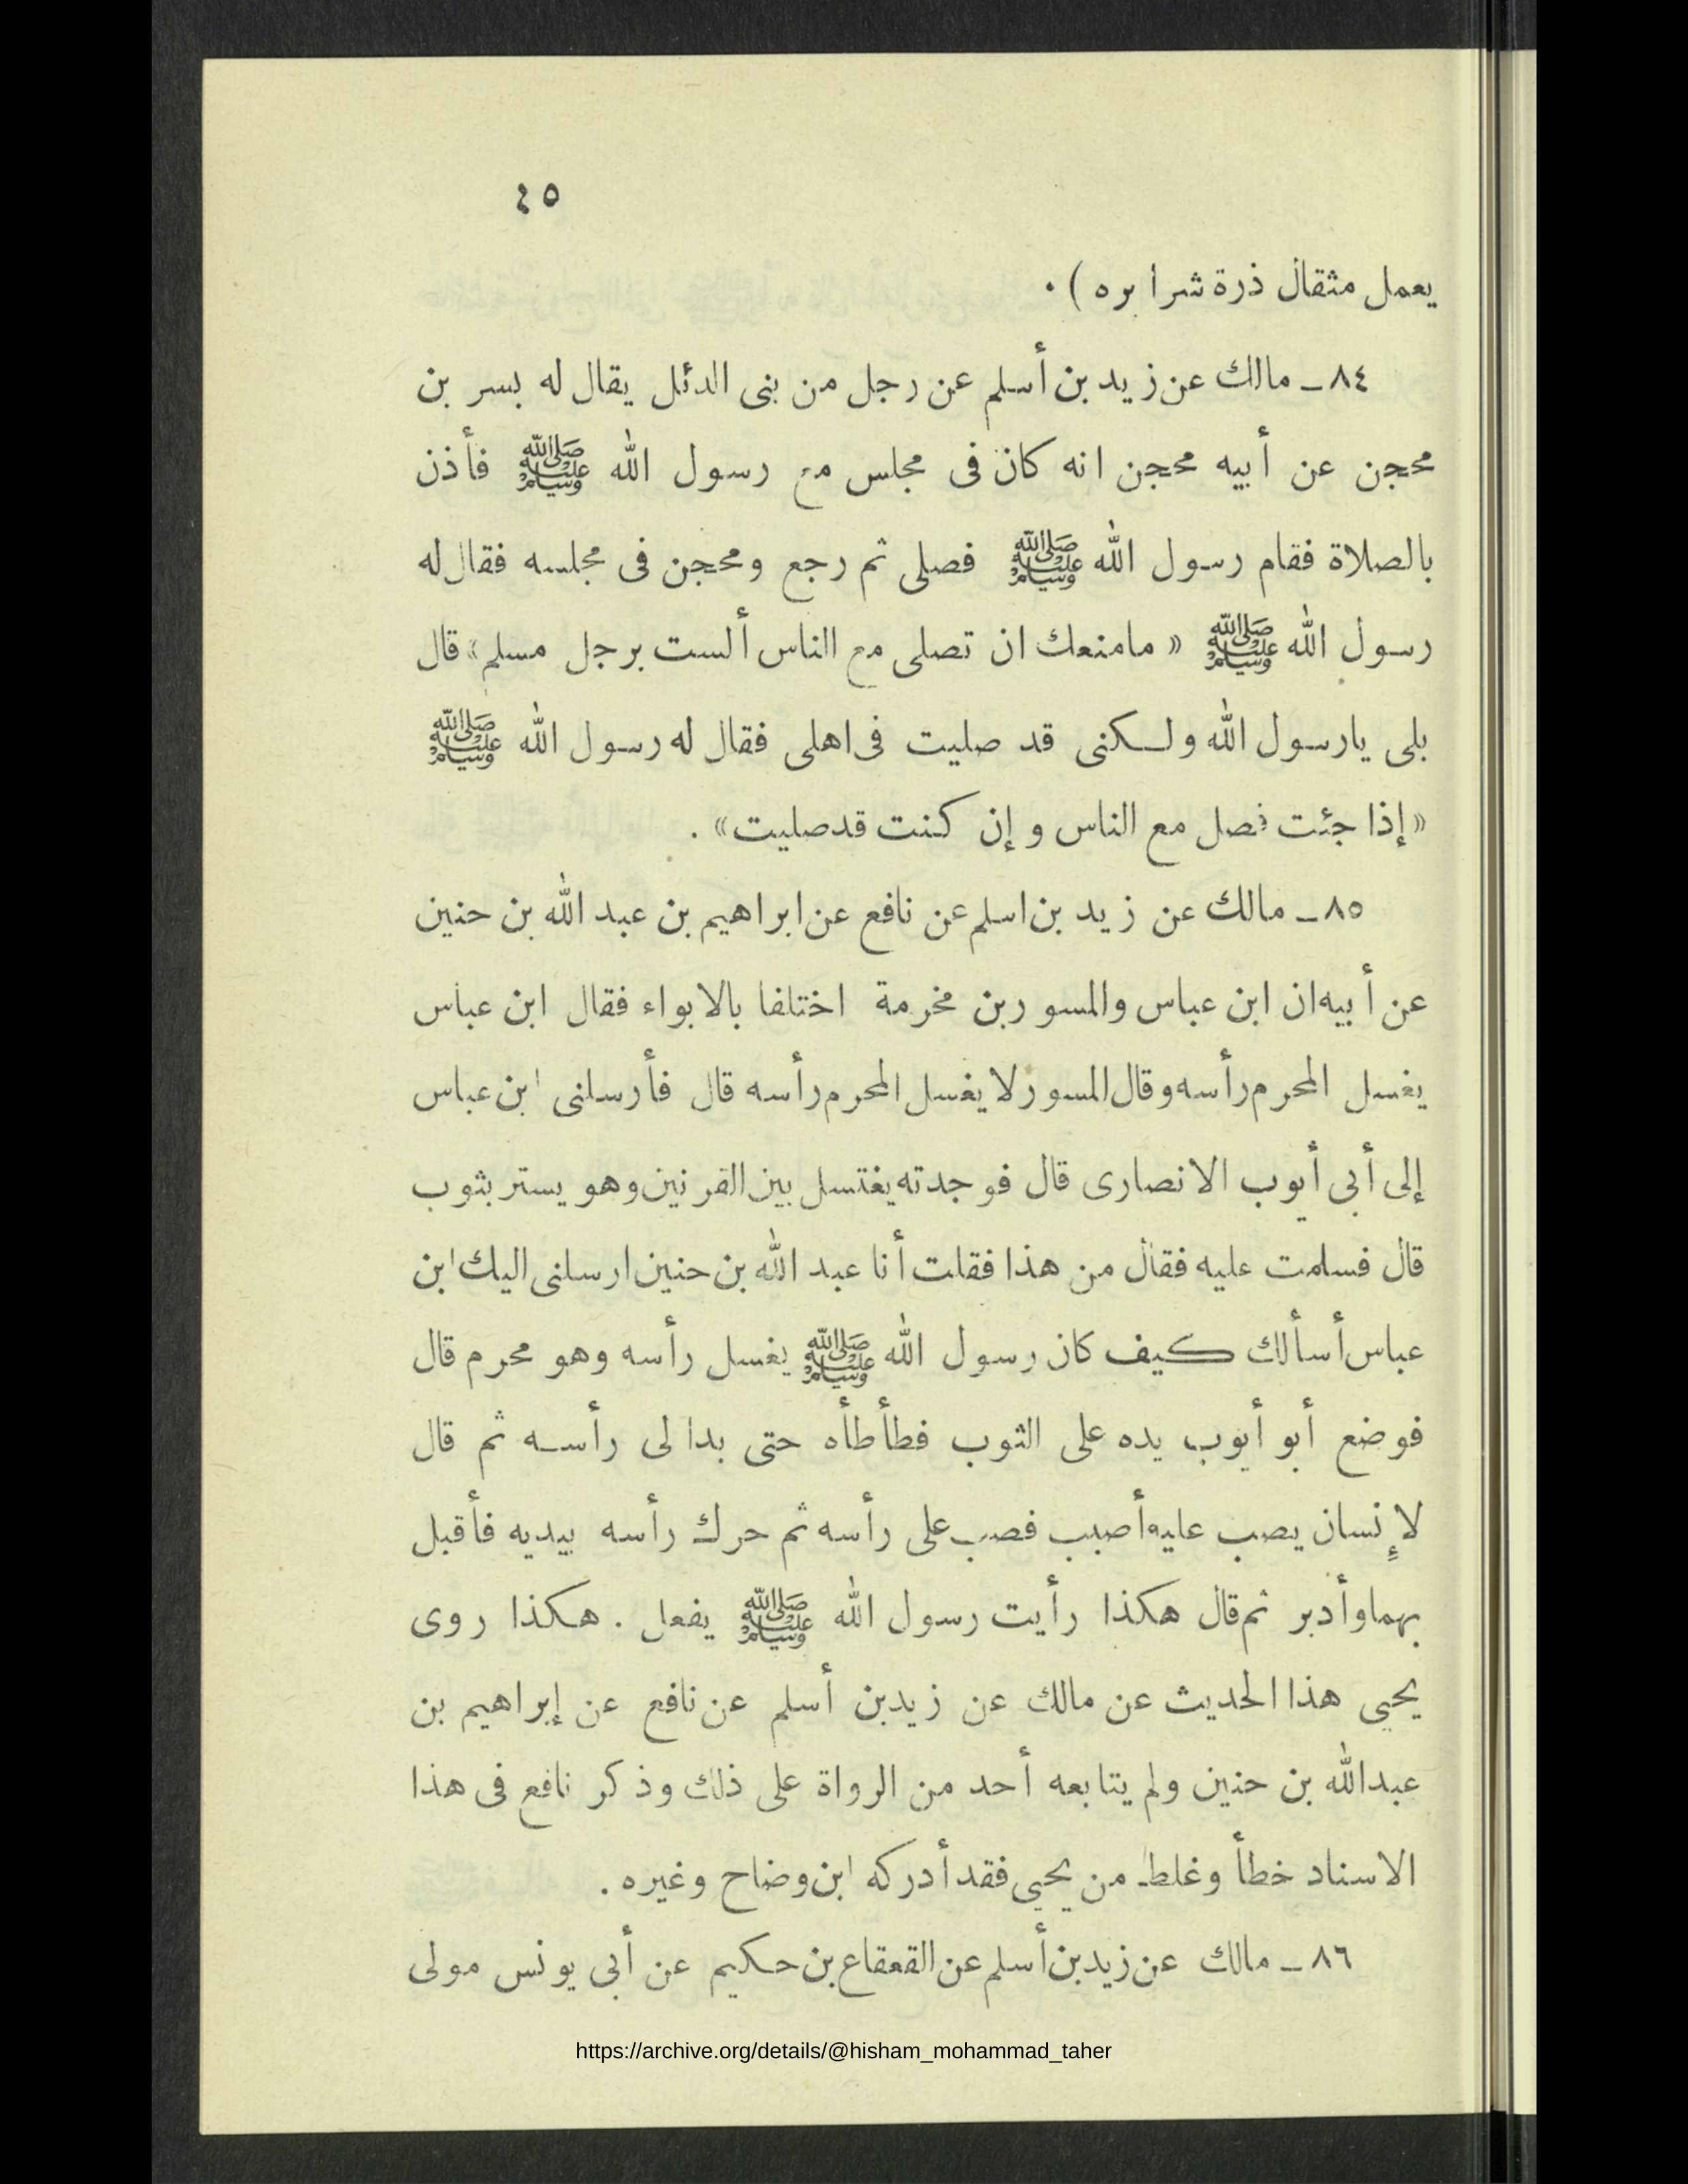 ٤٥
يعمل مثقال ذرة شرا يره ) .
٨٤ ــ مالك عن زيد بن أسلم عن رجل من بنى الدئل يقال له بسر بن
محجن عن أبيه محجن انه كان فى مجلس مع رسول الله ﷺ فأذن
بالصلاة فقام رسول الله ﷺ فصلى ثم رجع ومحجن فى مجلسه فقال له
رسول الله ﷺ « مامنعك ان تصلى مع الناس ألست برجل مسلم» قال
بلى يارسول الله ولـكنى قد صليت فى اهلى فقال له رسول الله ﷺ
«إذا جئت فصل مع الناس وإن كنت قدصليت» .
٨٥ ــ مالك عن زيد بن اسلم عن نافع عن ابراهيم بن عبد الله بن حنين
عن أبيه ان ابن عباس والمسور بن مخرمة اختلفا بالابواء فقال ابن عباس
يغسل المحرم رأسه وقال المسور لا يغسل المحرم رأسه قال فأرسلنى ابن عباس
إلى أبى أيوب الانصارى قال فوجدته يغتسل بين القرنين وهو يستر بثوب
قال فسلمت عليه فقال من هذا فقلت أنا عبد الله بن حنين ارسلنى اليك ابن
عباس أسألك كيف كان رسول الله ﷺ يغسل رأسه وهو محرم قال
فوضع أبو أيوب يده على الثوب فطأطأه حتى بدا لى رأسـه ثم قال
لإنسان يصب عليه أصبب فصب على رأسه ثم حرك رأسه بيديه فأقبل
بهما وأدبر ثم قال هكذا رأيت رسول الله ﷺ يفعل . هـكذا روى
يحيى هذا الحديث عن مالك عن زيدبن أسلم عن نافع عن إبراهيم بن
عبدالله بن حنين ولم يتابعه أحد من الرواة على ذلك وذكر نافع فى هذا
الاسناد خطأ وغلط من يحيى فقد أدركه ابن وضاح وغيره .
٨٦ ــ مالك عن زيد بن أسلم عن القعقاع بن حـكيم عن أبى يونس مولى
https://archive.org/details/@hisham_mohammad_taher